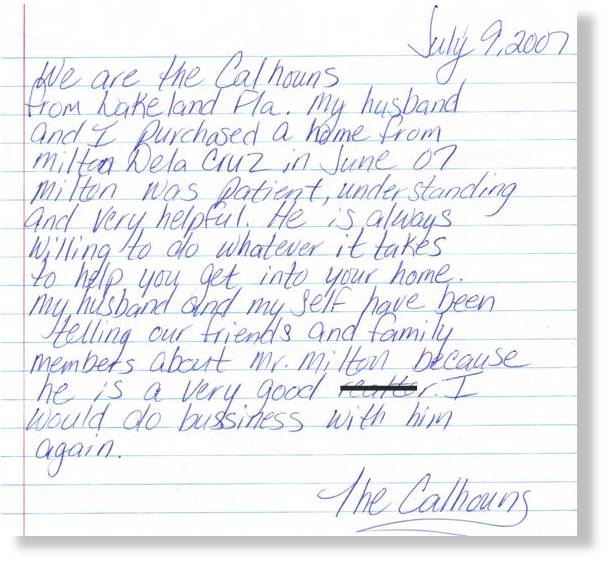 July 9, 2007
We are the Calhouns
from Lakeland Fla. My husband
and I purchased a home from
milton Dela Cruz in June 07
milton was patient, understanding
and very helpful. He is always
willing to do whatever it takes
to help you get into your home.
my husband and my self have been
telling our friends and family
members about Mr. Milton because
he is a very good realtor. I
would do bussiness with him
again.
The Calhouns